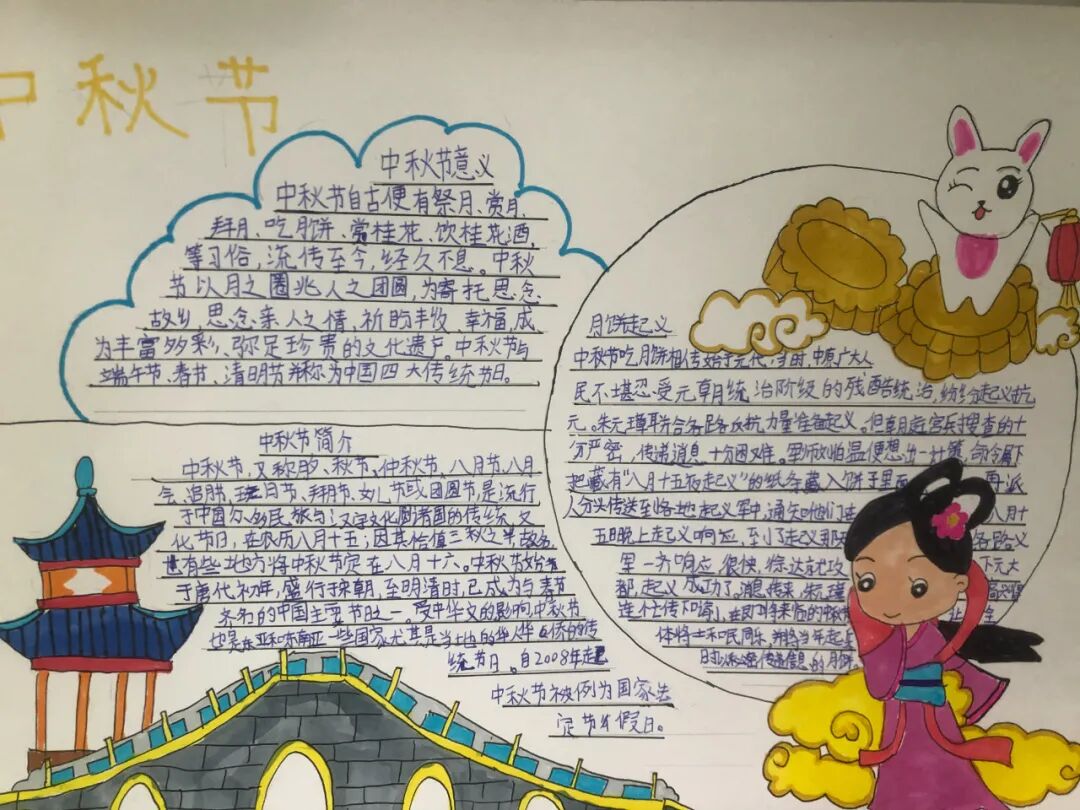 中秋节
中秋节意义
中秋节自古便有祭月、赏月、
拜月、吃月饼、赏桂花、饮桂花酒,
等习俗,流传至今,经久不息。中秋
节以月之圆兆人之团圆,为寄托思念
故乡,思念亲人之情,祈盼丰收、幸福,成
为丰富多彩、弥足珍贵的文化遗产。中秋节与
端午节、春节、清明节并称为中国四大传统节日。
中秋节简介
中秋节,又称月夕、秋节、仲秋节、八月节、八月
会、追月节、玩月节、拜月节、女儿节或团圆节,是流行
于中国众多民族与汉字文化圈诸国的传统文
化节日,在农历八月十五;因其恰值三秋之半,故名,
也有些地方将中秋节定在八月十六。中秋节始于
于唐代初年,盛行于宋朝,至明清时,已成为与春节
齐名的中国主要节日之一。受中华文的影响,中秋节
也是东亚和东南亚一些国家尤其是当地的华人华侨的传
统节日。自2008年起
中秋节被例为国家法
定节假日。
月饼起义
中秋节吃月饼相传始于元代,当时,中原广大人
民不堪忍受元朝统治阶级的残酷统治,纷纷起义抗
元。朱元璋联合各路反抗力量准备起义。但朝庭官兵搜查的十
分严密,传递消息十分困难。军师刘伯温便想出一计策,命令属下
把藏有“八月十五夜起义”的纸条藏入饼子里面 再派
人分头传送到各地起义军中,通知他们在 八月十
五日晚上起义响应,到了起义那 各路义
军一齐响应,很快,徐达就攻 下元大
都,起义成功了。消息传来,朱元璋
连忙传下口谕,在即将来临的中秋节
体将士和民同乐,并将当年起兵
时以秘密传递信息的月饼